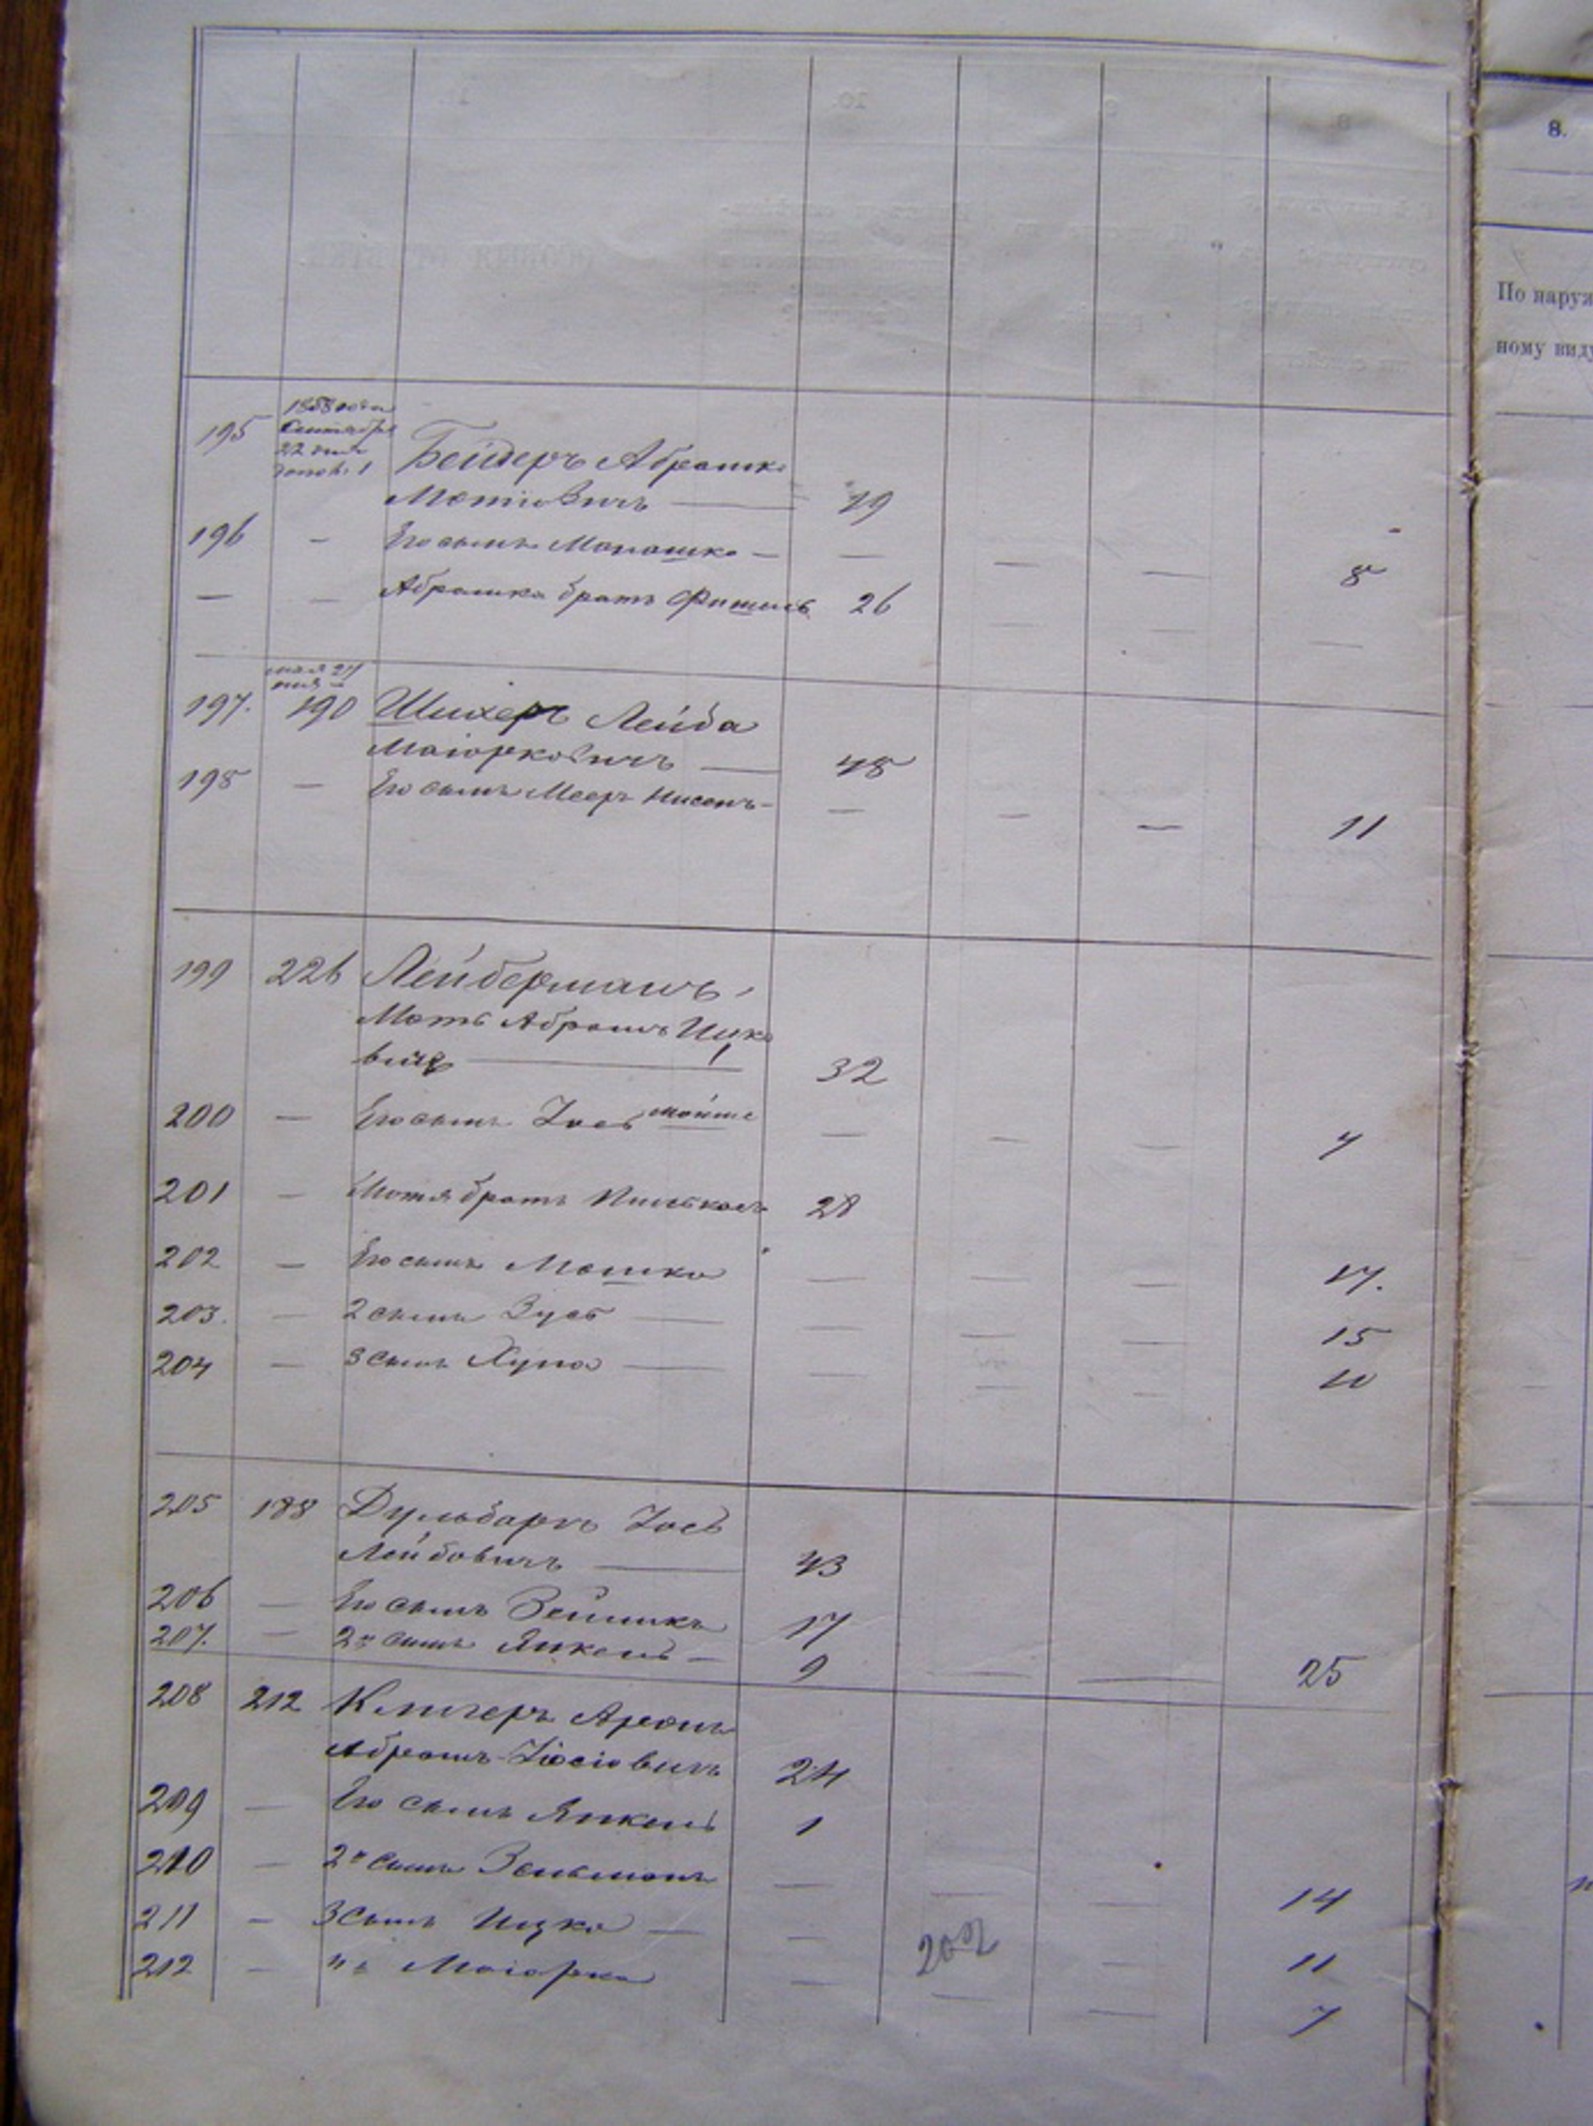 8.
По наруж
ному виду
195 1858 года
Сентября
22 дня
допол. 1
Бейдеръ Абрашка
Мотіовичъ — 19
196 — Его сынъ Монашка — — — — 8
— — Абрашка братъ Фишель 26 — — —
мая 27
дня
197. 190 Шихеръ Лейба
Маіорковичъ — 48
198 — Его сынъ Мееръ Нисенъ — — — — 11
199 226 Лейберманъ
Моть Абрамъ Ицко
вичъ — 32
200 — Его сынъ Іось мойше — — — 7
201 — Мотя братъ Пинькасъ 28
202 — Его сынъ Мошко — — — 17.
203. — 2 сынъ Зусь — — — — 15
204 — 3 сынъ Хуна — — — — 10
205 188 Дульбаргъ Іось
Лейбовичъ — 43
206 — Его сынъ Зейликъ 17
207. — 2й сынъ Янкель — 9 — — 25
208 212 Клигеръ Аронъ
Абрамъ-Іосіовичъ 24
209 — Его сынъ Янкель 1
210 — 2й сынъ Зельманъ — — — 14
211 — 3 сынъ Ицко — — — 11
202
212 — " " Маіорка — — — 7